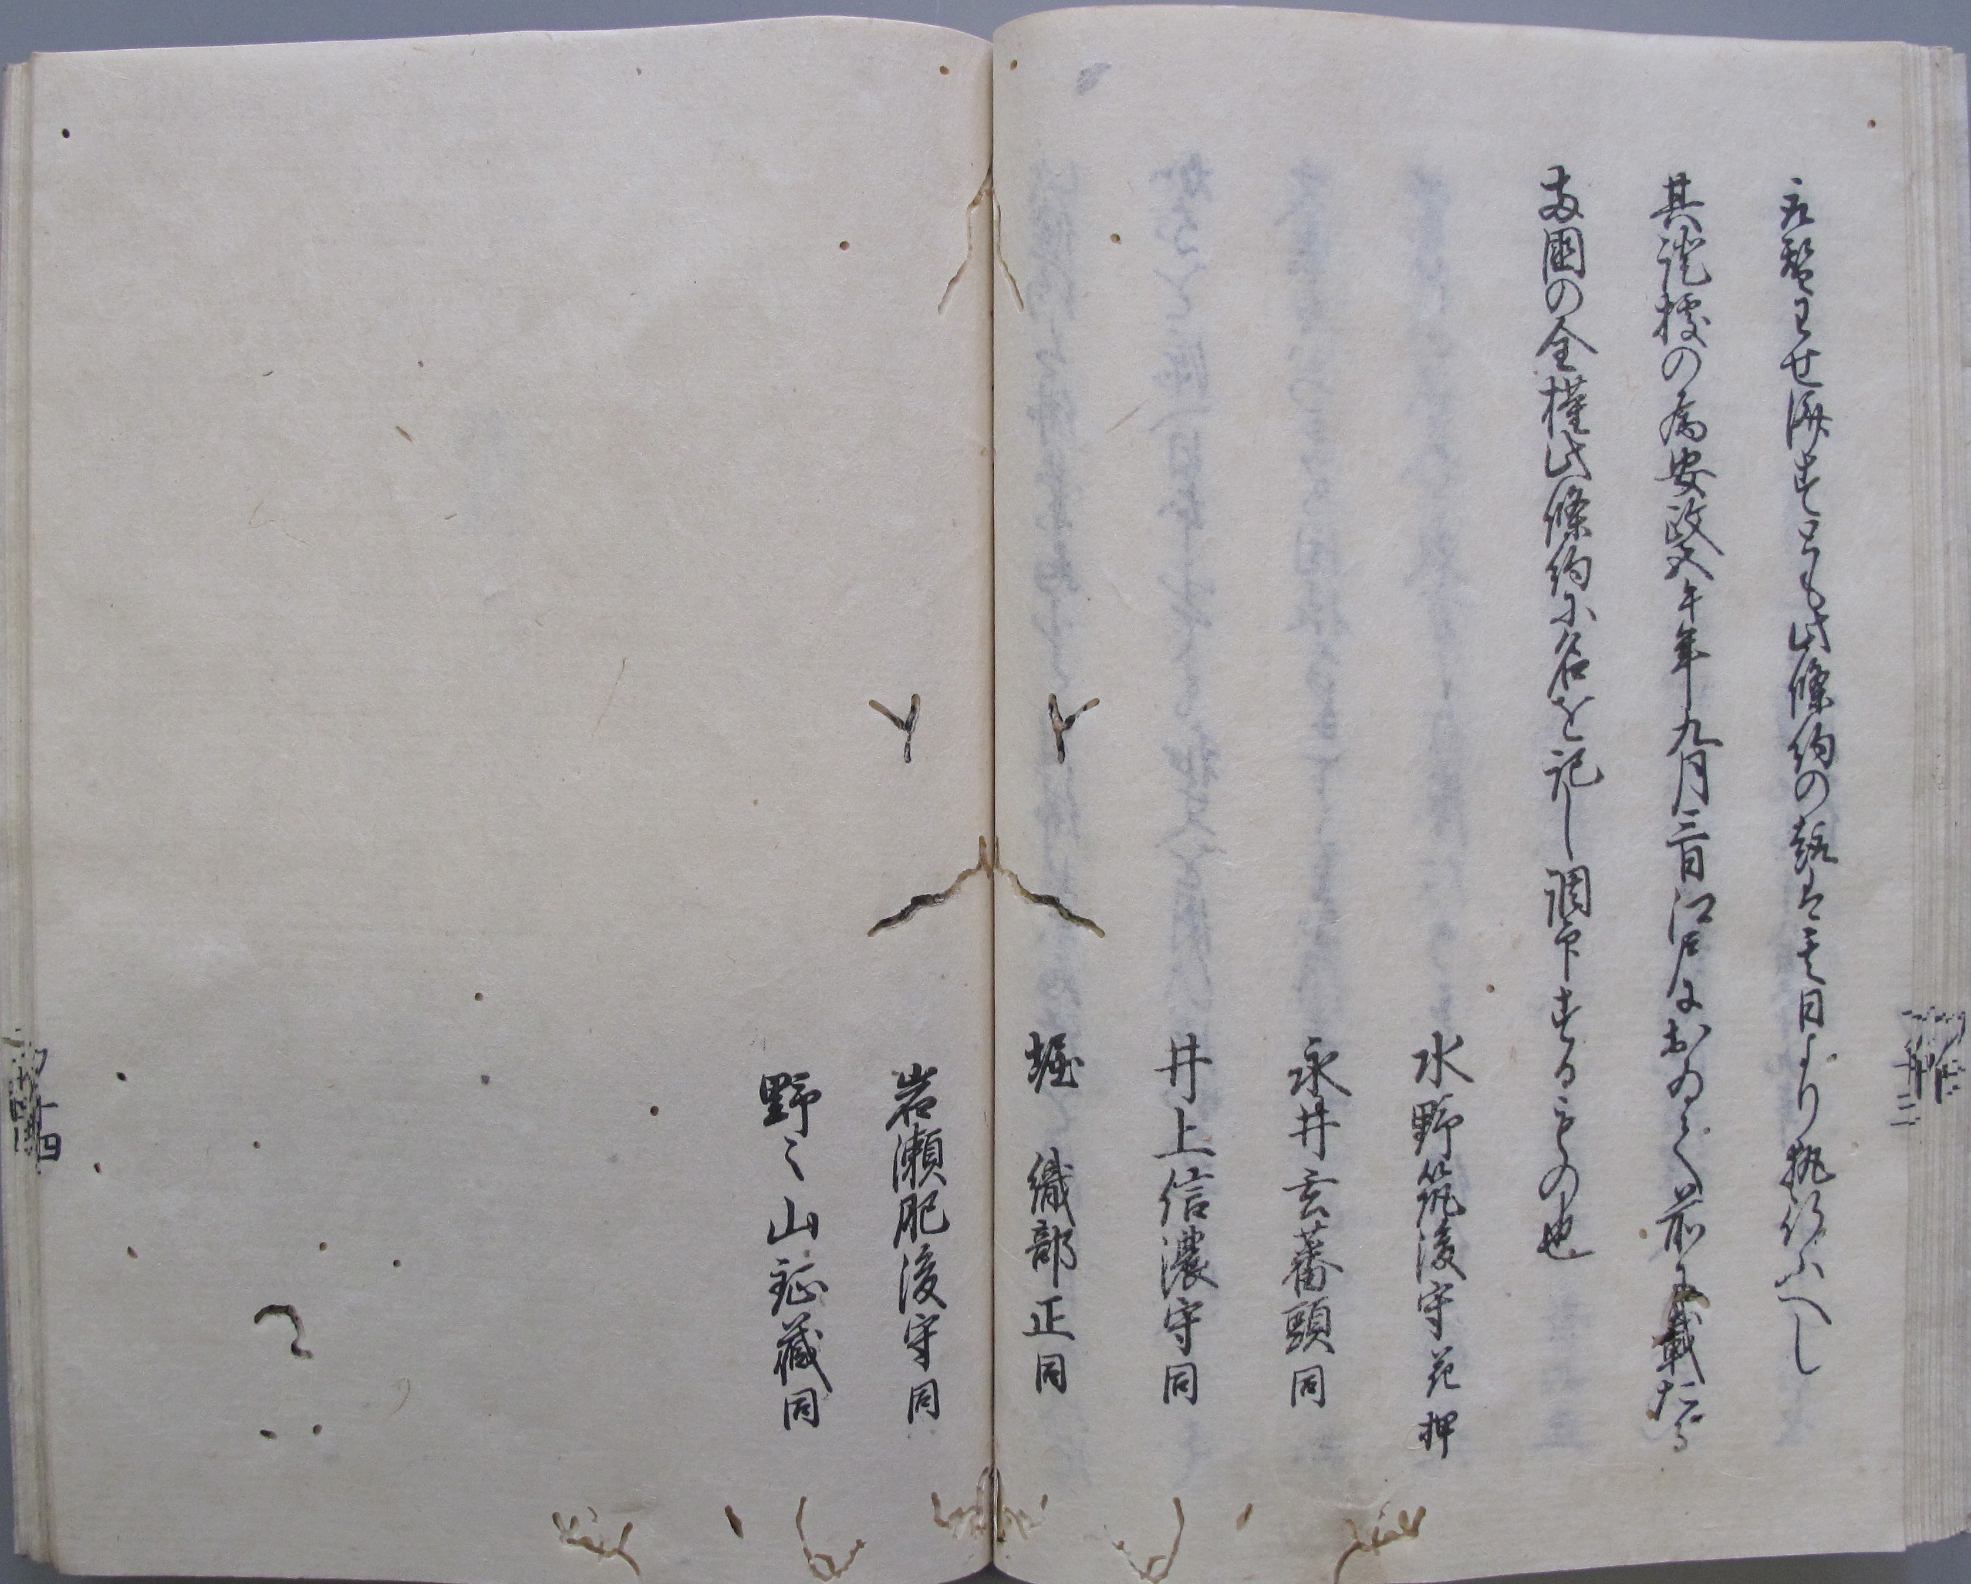 取替せ済すとも此條約の趣は其日より執行ふへし
其證拠の為安政五午年九月三日江戸におゐて前に載たる
両國の全権此條約に名を記し調印するもの也
水野筑後守花押
永井玄蕃頭同
井上信濃守同
堀織部正同
岩瀬肥後守同
野々山鉦藏同